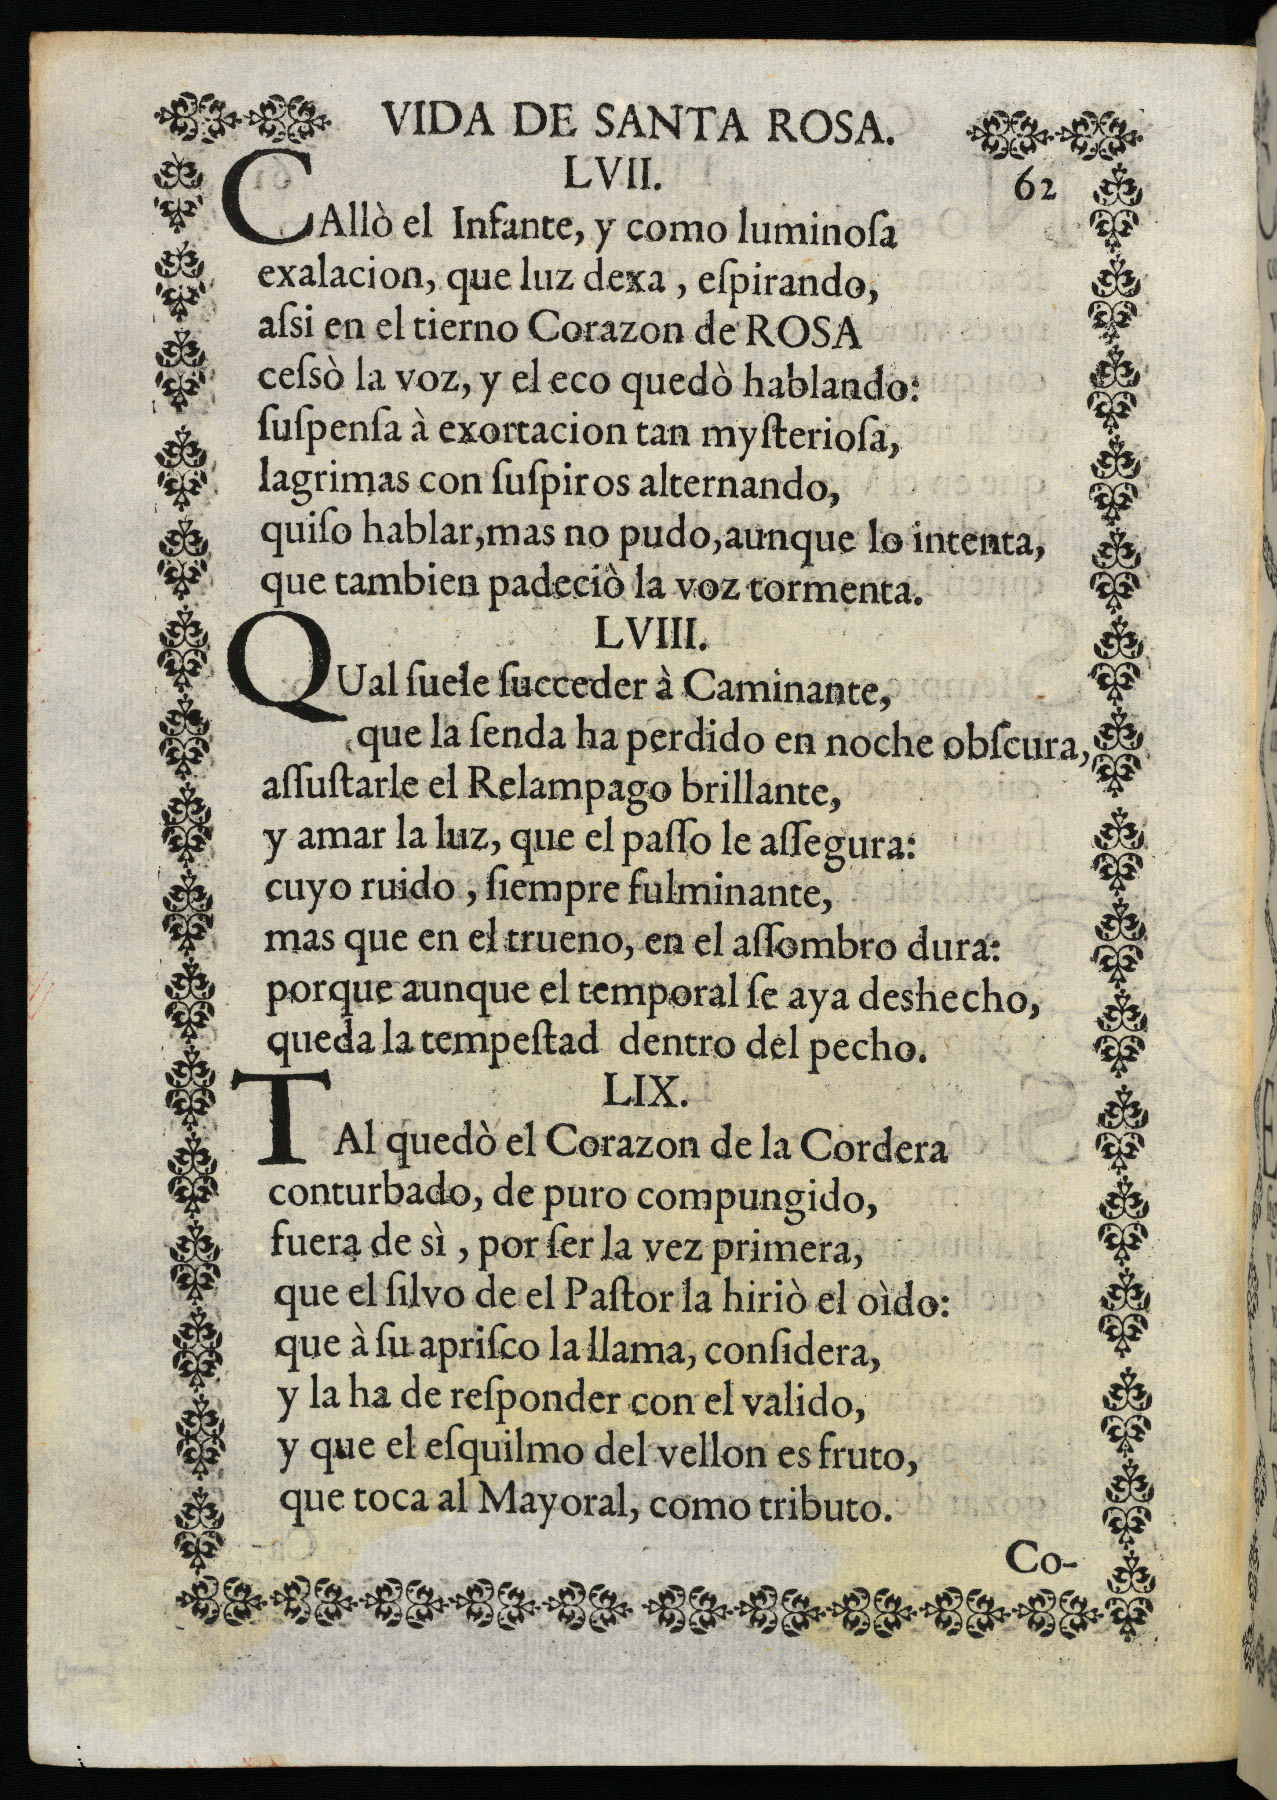 VIDA DE SANTA ROSA.
LVII.
62
CAllò el Infante, y como luminoſa
exalacion, que luz dexa, eſpirando,
aſsi en el tierno Corazon de ROSA
ceſsò la voz, y el eco quedò hablando:
ſuſpenſa à exortacion tan myſterioſa,
lagrimas con ſuſpiros alternando,
quiſo hablar, mas no pudo, aunque lo intenta,
que tambien padeciò la voz tormenta.
LVIII.
QUal ſuele ſucceder à Caminante,
que la ſenda ha perdido en noche obſcura,
aſſuſtarle el Relampago brillante,
y amar la luz, que el paſſo le aſſegura:
cuyo ruido, ſiempre fulminante,
mas que en el trueno, en el aſſombro dura:
porque aunque el temporal ſe aya deshecho,
queda la tempeſtad dentro del pecho.
LIX.
TAl quedò el Corazon de la Cordera
conturbado, de puro compungido,
fuera de sì, por ſer la vez primera,
que el ſilvo de el Paſtor la hiriò el oìdo:
que à ſu apriſco la llama, conſidera,
y la ha de reſponder con el valido,
y que el eſquilmo del vellon es fruto,
que toca al Mayoral, como tributo.
Co-